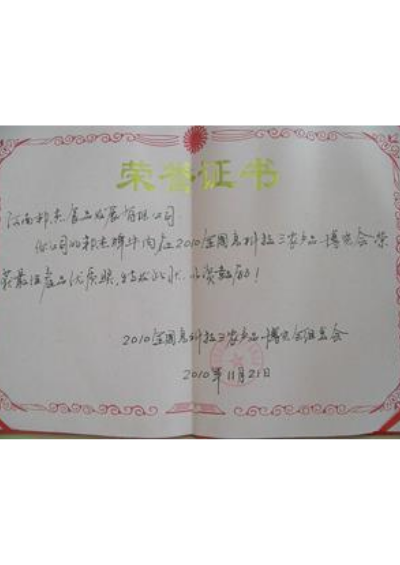 荣誉证书
河南邦杰食品发展有限公司:
你公司的邦杰牌牛肉在2010全国高科技三农产品博览会荣
获最佳产品优质奖,特发此状,以资鼓励!
2010全国高科技三农产品博览会组委会
2010年11月21日